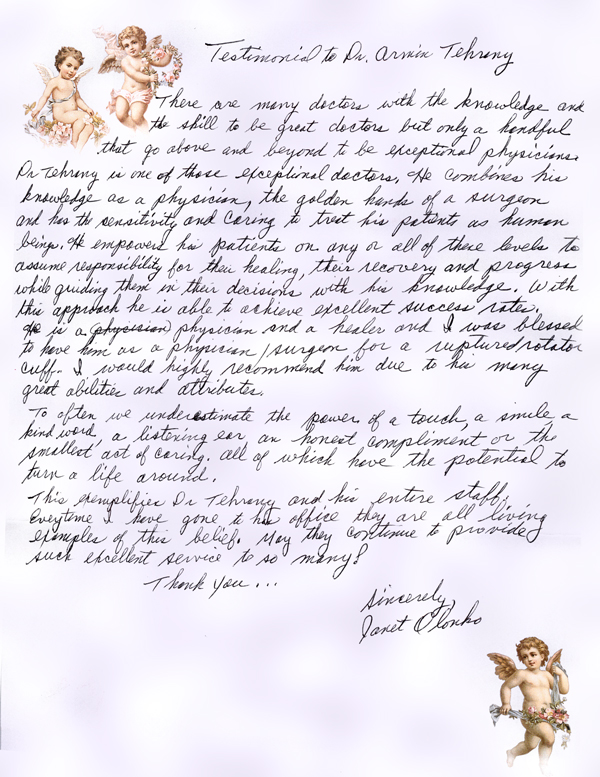 Testimonial to Dr. Armin Tehrany
There are many doctors with the knowledge and
the skill to be great doctors but only a handful
that go above and beyond to be exceptional physicians.
Dr Tehrany is one of those exceptional doctors. He combines his
knowledge as a physician, the golden hands of a surgeon
and has the sensitivity and caring to treat his patients as human
beings. He empowers his patients on any or all of these levels to
assume responsibility for their healing, their recovery and progress
while guiding them in their decisions with his knowledge. With
this approach he is able to achieve excellent success rates.
He is a physician and a healer and I was blessed
to have him as a physician/surgeon for a ruptured rotator
cuff. I would highly recommend him due to his many
great abilities and attributes.
To often we underestimate the power of a touch, a smile, a
kind word, a listening ear, an honest compliment or the
smallest act of caring. All of which have the potential to
turn a life around.
This exemplifies Dr Tehrany and his entire staff.
Everytime I have gone to his office they are all living
examples of this belief. May they continue to provide
such excellent service to so many!
Thank you...
Sincerely,
Janet